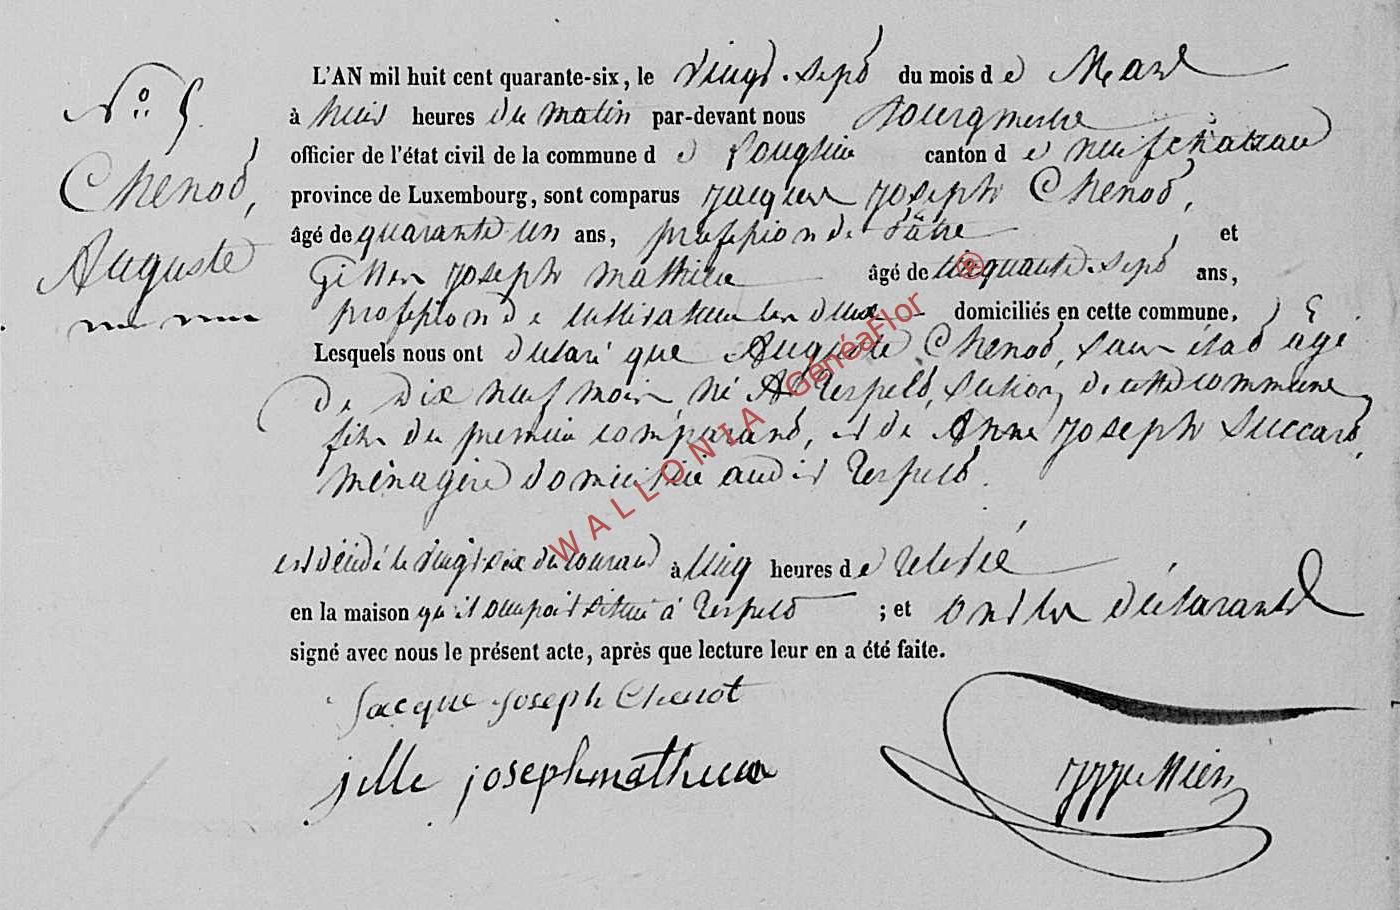 N° 5.
Chenot,
Auguste
L'AN mil huit cent quarante-six, le vingt-sept du mois d e Mars
à huit heures du matin par-devant nous Bourgmestre
officier de l'état civil de la commune d e canton d e neufchateau
province de Luxembourg, sont comparus Jacques Joseph Chenot,
âgé de quarante un ans, profession de Pâtre , et
Gilles Joseph Mathieu âgé de cinquante-sept ans,
profession de cultivateur les deux domiciliés en cette commune.
Lesquels nous ont déclaré que Auguste Chenot, sans état âgé
de dix neuf mois, né à Respelt, section de cette commune
fils du premier comparant, et de Anne Joseph Succard,
ménagère domiciliée audit Respelt.
est décédé le vingt six du courant à cinq heures d e relevée
en la maison qu'il occupait située à Respelt ; et ont les déclarants
signé avec nous le présent acte, après que lecture leur en a été faite.
Jacque Joseph Chenot
jille joseph mathieu
WALLONIA GénéaFlor ®